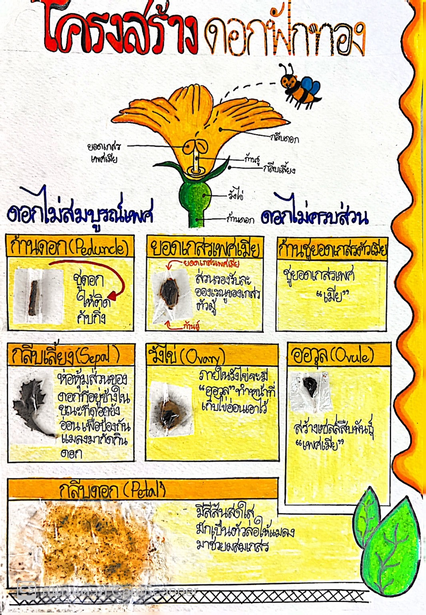 โครงสร้างดอกฟักทอง
กลีบดอก
ยอดเกสร
เพศเมีย
ก้านชู
กลีบเลี้ยง
รังไข่
ก้านดอก
ดอกไม่สมบูรณ์เพศ
ดอกไม่ครบส่วน
ก้านดอก (Peduncle)
ชูดอก
ให้ติด
กับกิ่ง
ยอดเกสรเพศเมีย
ยอดเกสรเพศเมีย
ส่วนรองรับละ
อองเรณูของเกสร
ตัวผู้
ก้านชู
ก้านชูยอดเกสรตัวเมีย
ชูยอดเกสรเพศ
"เมีย"
กลีบเลี้ยง (Sepal)
ห่อหุ้มส่วนของ
ดอกที่อยู่ข้างใน
ขณะที่ดอกยัง
อ่อน เพื่อป้องกัน
แมลงมากัดกิน
ดอก
รังไข่ (Ovary)
ภายในรังไข่จะมี
"ออวุล" ทำหน้าที่
เก็บไข่อ่อนเอาไว้
ออวุล (Ovule)
สร้างเซลล์สืบพันธุ์
"เพศเมีย"
กลีบดอก (Petal)
มีสีสันสดใส
มักเป็นตัวล่อให้แมลง
มาช่วยผสมเกสร